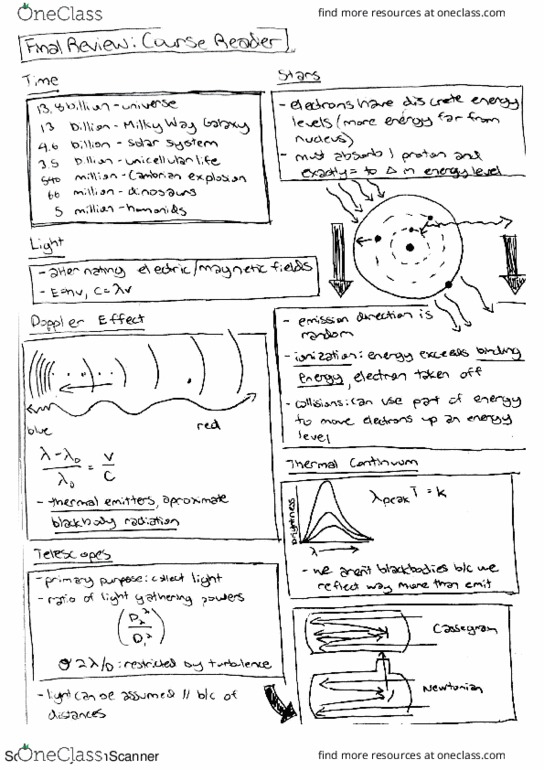 OneClass
find more resources at oneclass.com
Final Review: Course Reader
Time
13.8 billion - universe
13 billion - Milky Way Galaxy
4.6 billion - solar system
3.5 billion - unicellular life
540 million - Cambrian explosion
66 million - dinosaurs
5 million - humanids
Light
- alternating electric/magnetic fields
- E=hν, C=λν
Doppler Effect
blue
red
λ-λ₀ / λ₀ = v / c
- thermal emitters, aproximate
blackbody radiation
Telescopes
- primary purpose: collect light
- ratio of light gathering powers
2λ/D: restricted by turbulence
- light can be assumed // b/c of
distances
Stars
- electrons have discrete energy
levels (more energy far from
nucleus)
- must absorb 1 proton and
exactly = to Δ in energy level
- emission direction is
random
- ionization: energy exceeds binding
energy, electron taken off
- collisions: can use part of energy
to move electrons up an energy
level
Thermal Continuum
Brightness
λ
λpeak T = k
- we aren't blackbodies b/c we
reflect way more than emit
Cassegrain
Newtonian
OneClass
Scanner
find more resources at oneclass.com